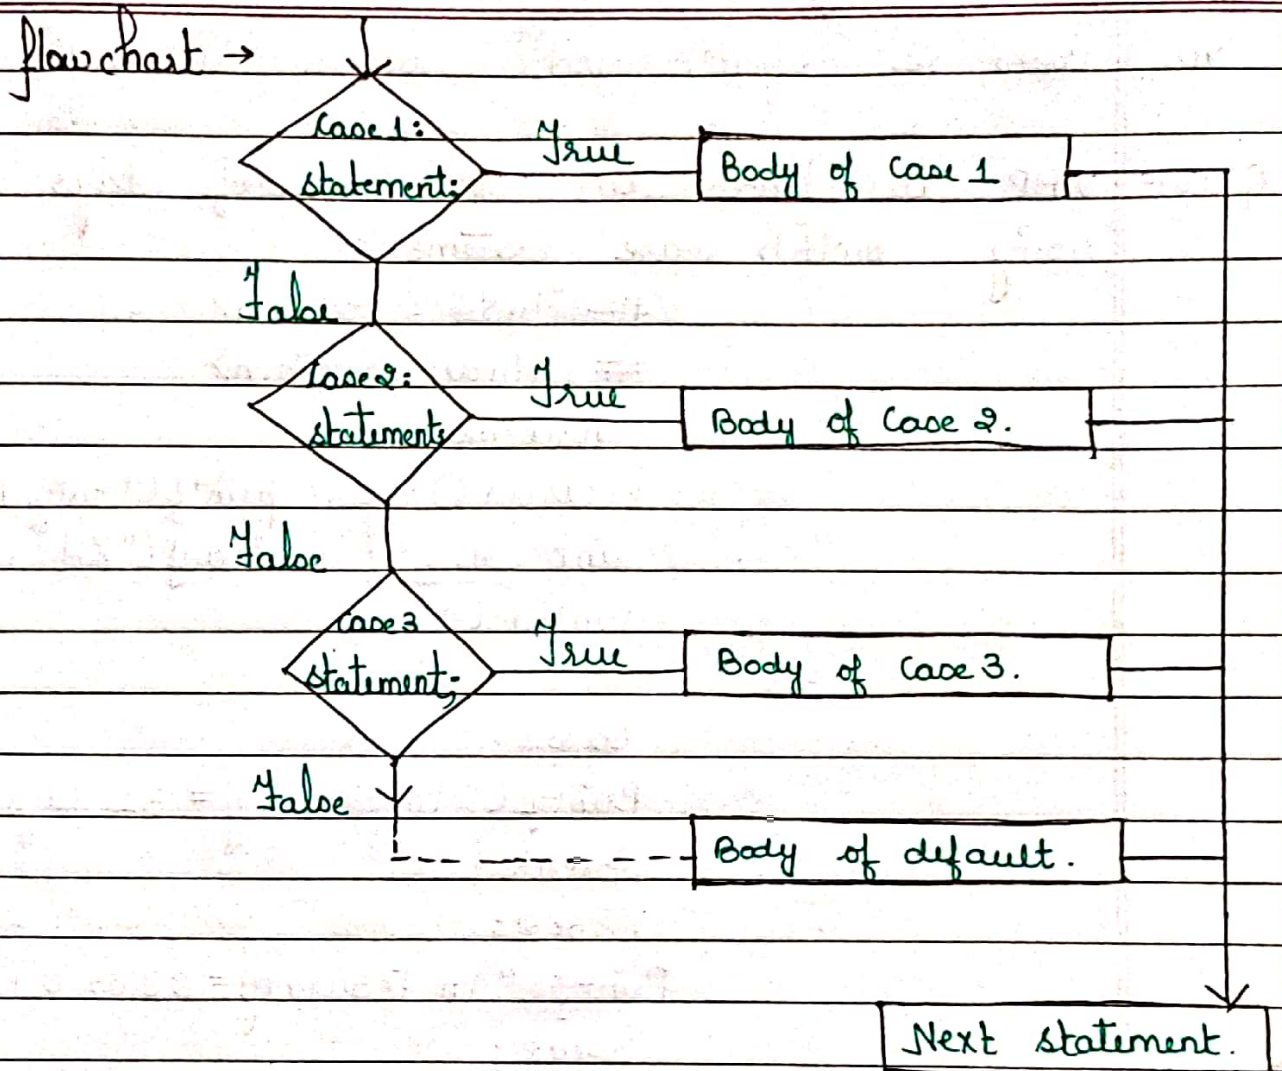 flowchart →
Case 1:
statement;
True
Body of Case 1
False
Case 2:
statement;
True
Body of Case 2.
False
Case 3
statement;
True
Body of Case 3.
False
Body of default.
Next statement.